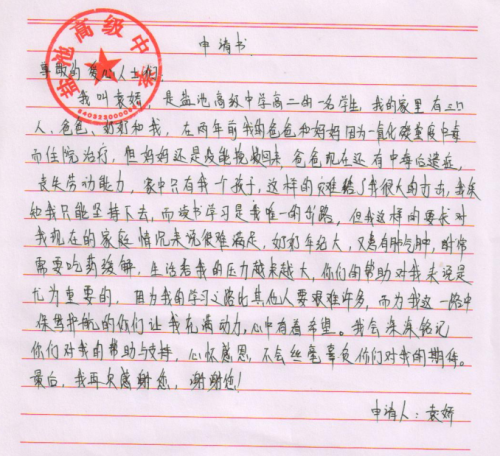 盐池高级中学
申请书
尊敬的爱心人士们：
我叫袁娇，是盐池高级中学高二的一名学生，我的家里有三口
人，爸爸、奶奶和我，在两年前我的爸爸和妈妈因为一氧化碳重度中毒
而住院治疗，但妈妈还是没能抢救回来，爸爸现在还有中毒后遗症，
丧失劳动能力，家中只有我一个孩子，这样的灾难给了我很大的打击，我深
知我只能坚持下去，而读书学习是我唯一的出路，但我这样的要求对
我现在的家庭情况来说很难满足，奶奶年纪大，又患有肺气肿，时常
需要吃药缓解，生活给我的压力越来越大，你们的帮助对我来说是
尤为重要的，因为我的学习之路比其他人要艰难许多，而为我这一路中
保驾护航的你们让我充满动力，心中有着希望。我会深深铭记
你们对我的帮助与支持，心怀感恩，不会丝毫辜负你们对我的期待。
最后，我再次感谢您，谢谢您！
申请人：袁娇